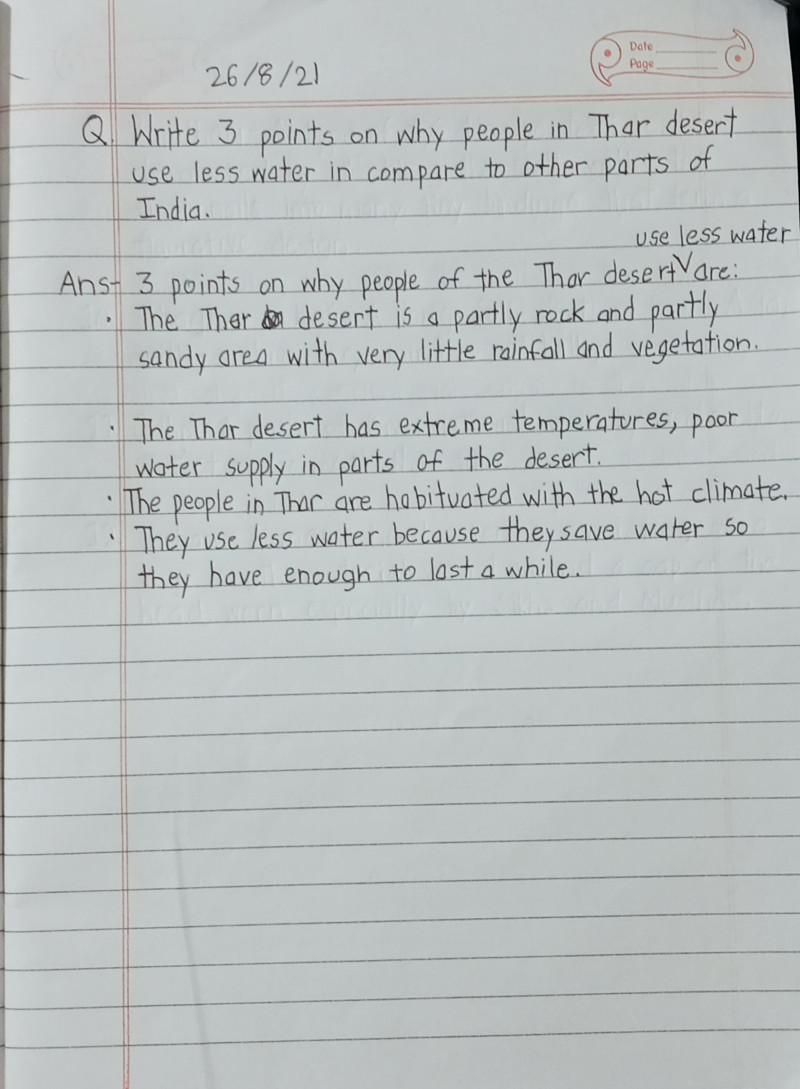 Date
Page
26/8/21
Q. Write 3 points on why people in Thar desert
use less water in compare to other parts of
India.
use less water
Ans- 3 points on why people of the Thar desert are:
· The Thar desert is a partly rock and partly
sandy area with very little rainfall and vegetation.
· The Thar desert has extreme temperatures, poor
water supply in parts of the desert.
· The people in Thar are habituated with the hot climate.
· They use less water because they save water so
they have enough to last a while.